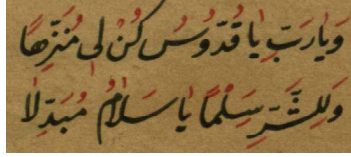 وَيَارَبِّ يَا قُدُّوسُ كُنْ لِى مُنَزِّهًا
وَلِلشَّرِّ سِلْمًا يَا سَلَامُ مُبَدِّلَا